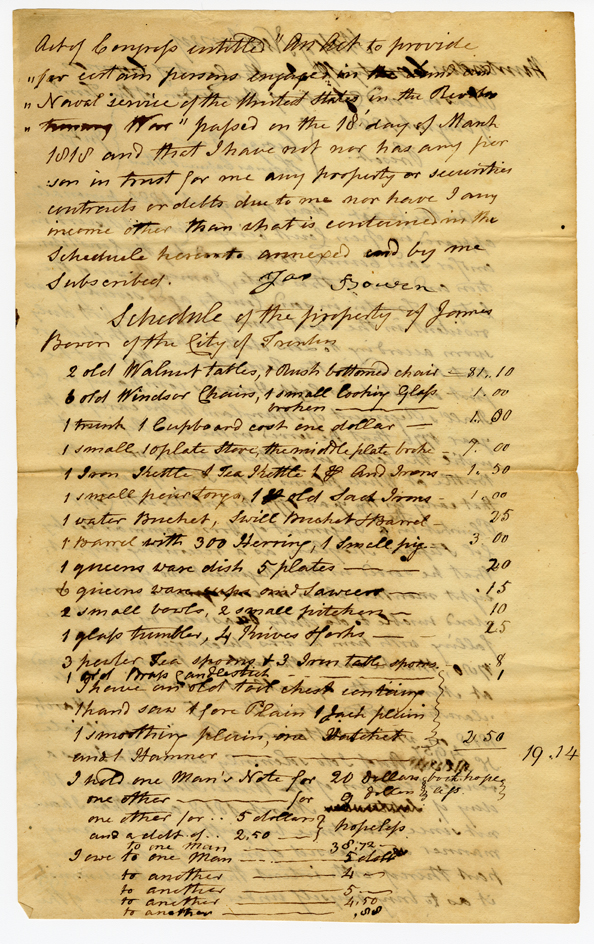 Act of Congress entitled "An Act to provide
"for certain persons engaged in the Land
"Naval service of the United States in the Revolu
"tionary War" passed on the 18 day of March
1818 and that I have not nor has any per
son in trust for me any property or securities
contracts or debts due to me nor have I any
income other than what is contained in the
Schedule hereunto annexed and by me
Subscribed. Jas Bowen
Schedule of the property of James
Bowen of the City of Trenton
2 old Walnut tables, 1 Rush bottomed chair — $1. 10
6 old Windsor Chairs, 1 small looking Glass 1. 00
broken
1 trunk 1 Cupboard cost one dollar —
1 small 10 plate Stove, the middle plate broke — 7. 00
1 Iron Kettle 1 Tea Kettle And Irons — 1. 50
1 small pair Tongs, old Sad Irons — 1. 00
1 water Bucket, Swill Bucket & Barrel — 25
1 Barrel with 300 Herring, 1 Small pig — 3 00
1 queens ware dish 5 plates — 20
6 queens ware cups and Sawcers — . 15
2 small bowls, 2 small pitchers — 10
1 glass tumbler, 4 Knives & forks — 25
3 pewter Tea spoons & 3 Iron table spoons. 8
1 old Brass Candlestick
I have an old tool chest containing
1 hand saw 1 fore Plain 1 Jack plain
1 smoothing plain, one Hatchet 2. 50
and 1 Hammer — 19. 14
I hold one Man's Note for 20 dollars both hope
one other — for 9 dollars less
one other for .. 5 dollars
and a debt of .. 2.50 — hopeless
to one man — 38.72 —
I owe to one Man — 5 dolls
to another — 4 —
to another — 5 —
to another — 4.50
to another — .88